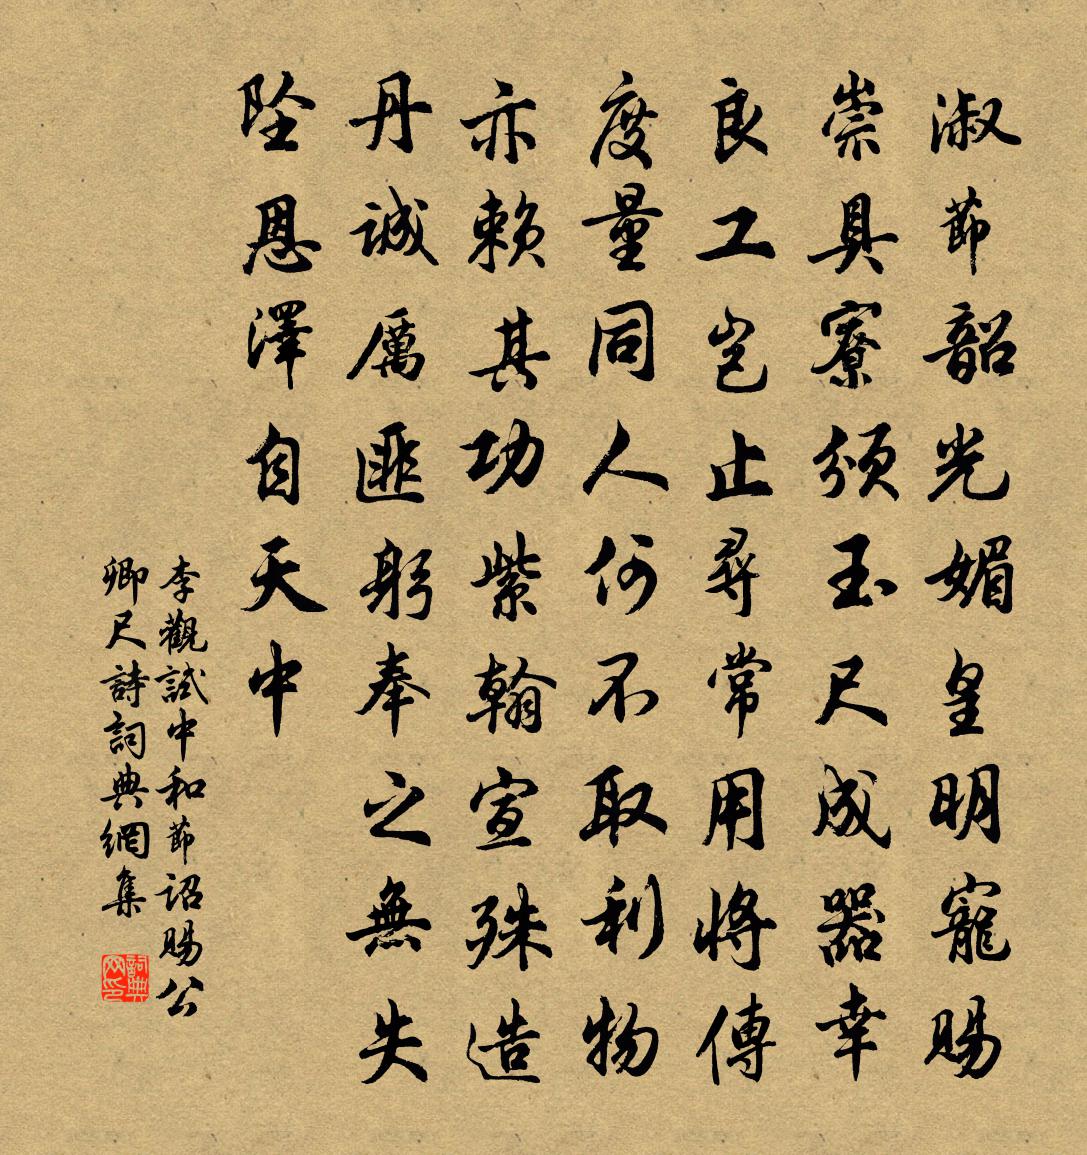 淑節韶光媚皇明寵賜
崇具寮頒玉尺成器幸
良工豈止尋常用將傳
度量同人何不取利物
亦賴其功紫翰宣殊造
丹誠厲匪躬奉之無失
墜恩澤自天中
李觀試中和節詔賜公
卿尺詩詞典網集